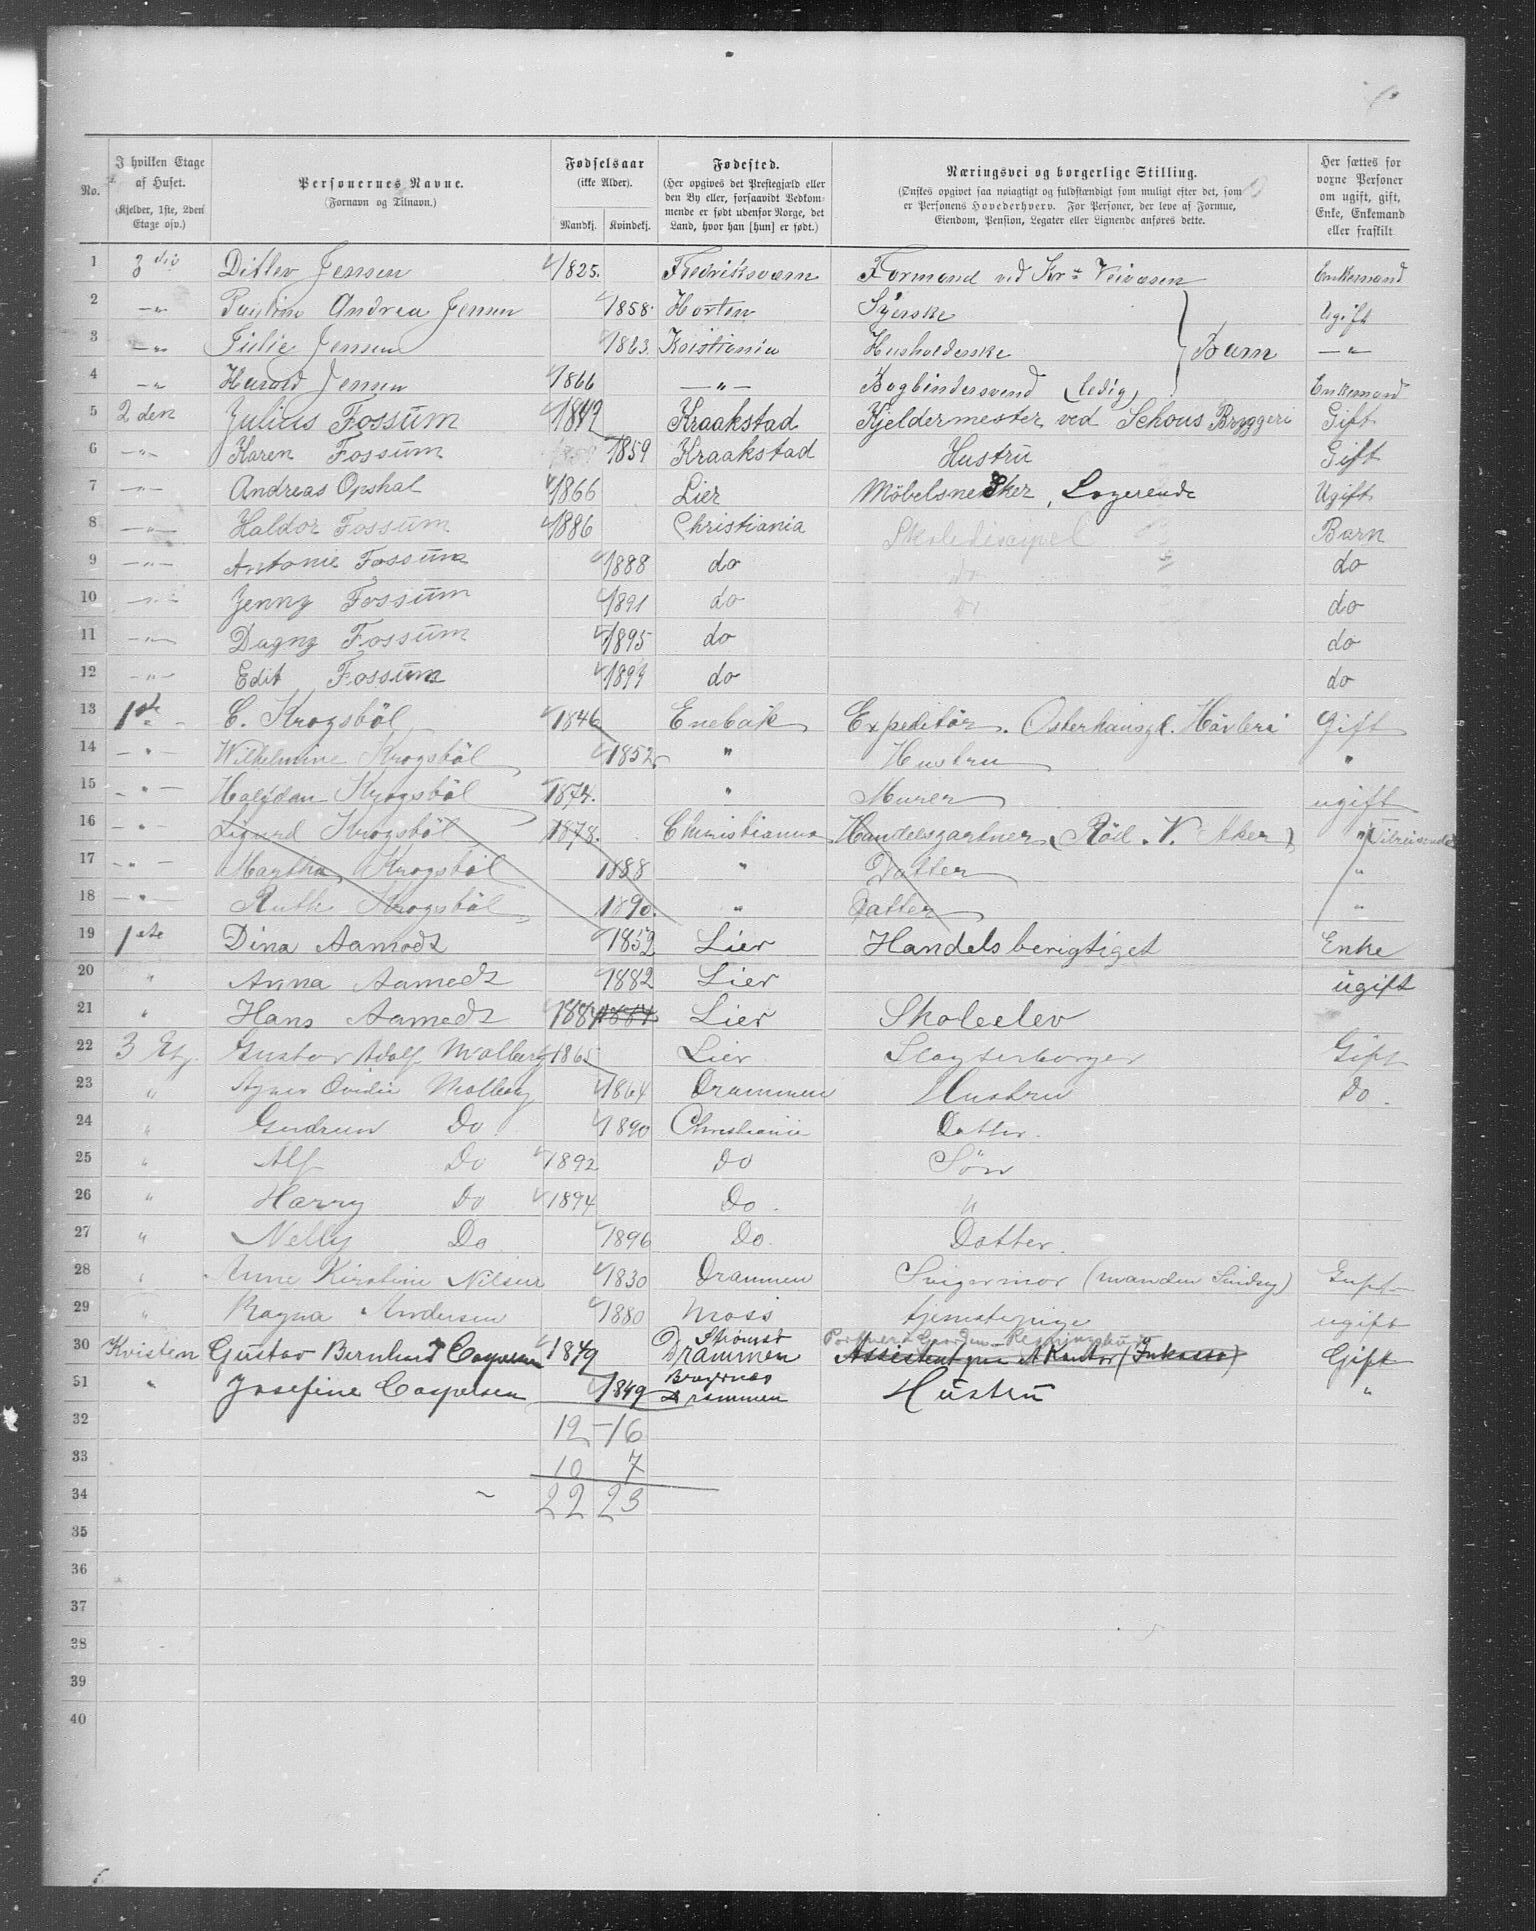 No. | I hvilken Etage af Huset. (Kjelder, 1ste, 2den Etage osv.) | Personernes Navne. (Fornavn og Tilnavn.) | Fødselsaar (ikke Alder). Mandkj. Kvindekj. | Fødested. (Her opgives det Prestegjæld eller den By eller, forsaavidt Vedkommende er født udenfor Norge, det Land, hvor han [hun] er født.) | Næringsvei og borgerlige Stilling. (Ønskes opgivet saa nøiagtigt og fuldstændigt som muligt efter det, som er Personens Hovederhverv. For Personer, der leve af Formue, Eiendom, Pension, Legater eller Lignende anføres dette. | Her sættes for voxne Personer om ugift, gift, Enke, Enkemand eller fraskilt
1 3die Ditlev Jensen 1825. Fredriksværn Formand ved Kra Veivæsen Enkemand
2 —"— Andrea Jensen 1858. Horten Syerske Ugift
3 —"— Julie Jensen 1863. Kristiania Husholderske } Barn —"—
4 —"— Harald Jensen 1866 —"— Bogbindersvend (ledig) Enkemand
5 2den Julius Fossum Kraakstad Kjeldermester ved Schous Bryggeri Gift
6 —"— Karen Fossum 1859 Kraakstad Hustru Gift
7 —"— Andreas Opshal 1866 Lier Möbelsnedker, Logerende Ugift
8 —"— Haldor Fossum 1886 Christiania Skolediscipel Barn
9 —"— Antonie Fossum 1888 do do do
10 —"— Jenny Fossum 1891 do do do
11 —"— Dagny Fossum 1895 do do
12 —"— Edit Fossum 1899 do do
13 1ste C. Krogsböl 1846 Enebak Expeditör. Osterhausgt. Hövleri Gift
14 —"— Wilhelmine Krogsböl 1852. " Hustru "
15 —"— Halfdan Krogsböl 1874. " Murer ugift
16 —"— Sigurd Krogsböl 1878. Christiania Handelsgartner (Röil. V. Aker) " Tilreisende
17 —"— Martha Krogsböl 1888 " Datter "
18 —"— Ruth Krogsböl 1890. " Datter "
19 1ste Dina Aamodt 1852 Lier Handelsberigtiget Enke
20 " Anna Aamodt 1882 Lier ugift
21 " Hans Aamodt 1884 Lier Skoleelev
22 3 Etg. Gustav Adolf Molberg 1865 Lier Slagterborger Gift
23 " Agnes Ovidie Molberg 1864 Drammen Hustru Do.
24 " Gudrun Do 1890 Christiania Datter.
25 " Alf Do 1892 Do Sön
26 " Harry Do 1894 Do. "
27 " Nelly Do 1896 Do. Datter.
28 " Anne Kirstine Nilsen 1830 Drammen Svigermor (manden Sindsyg) Gift
29 " Ragna Andersen 1880 Moss tjenestepige ugift
30 Kvisten Gustav Bernhard Caspersen 1849 Strömsö Drammen Assistent paa et Kontor (Inkasso) Gift
31 " Josefine Caspersen 1849 Bragernæs Drammen Hustru "
32 12 – 16
33 10 7
34 22 23
35
36
37
38
39
40